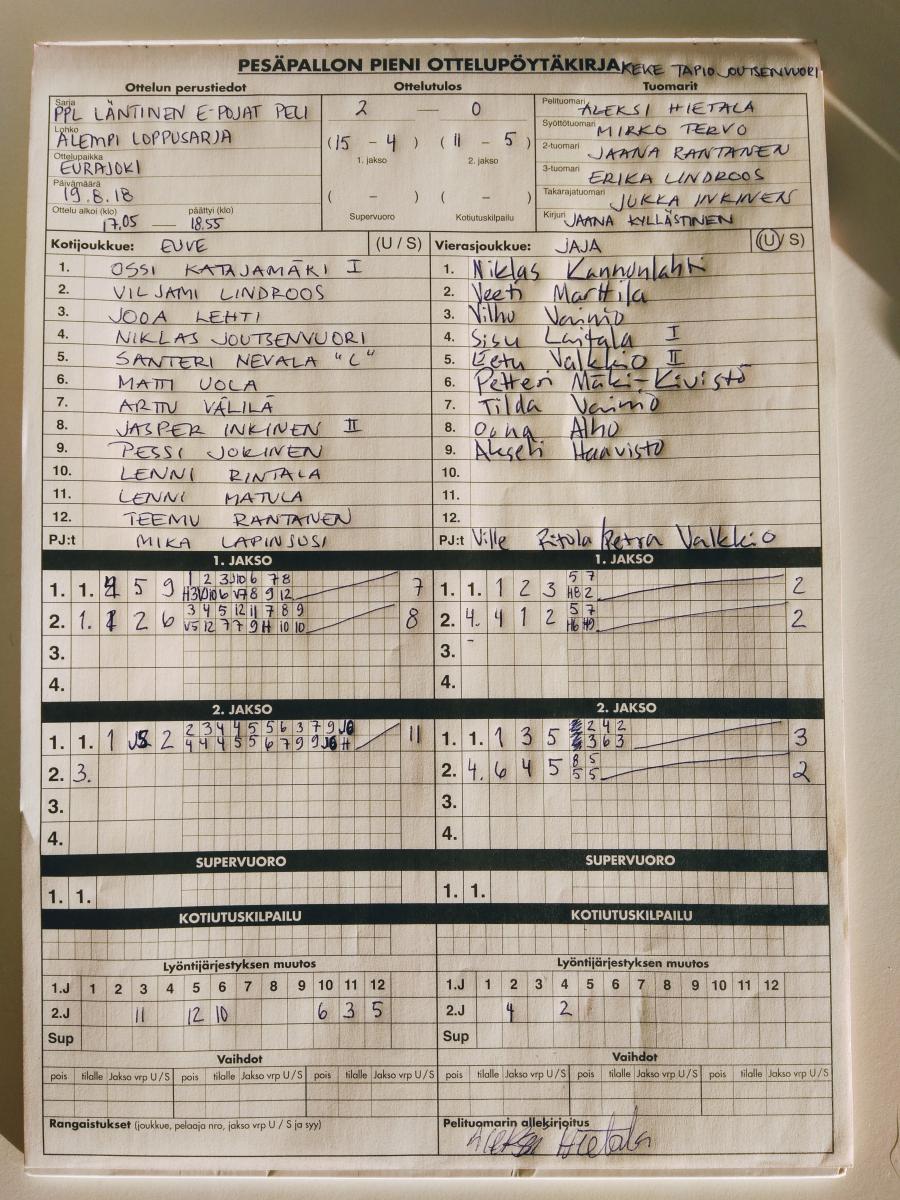 PESÄPALLON PIENI OTTELUPÖYTÄKIRJA KEKE TAPIO JOUTSENVUORI
Ottelun perustiedot Ottelutulos Tuomarit
Sarja PPL LÄNTINEN E-POJAT PELI 2 — 0 Pelituomari ALEKSI HIETALA
Lohko ALEMPI LOPPUSARJA (15 - 4) (11 - 5) Syöttötuomari MIRKO TERVO
1. jakso 2. jakso 2-tuomari JAANA RANTANEN
Ottelupaikka EURAJOKI 3-tuomari ERIKA LINDROOS
Päivämäärä 19.8.18 ( - ) ( - ) Takarajatuomari JUKKA INKINEN
Ottelu alkoi (klo) 17.05 — päättyi (klo) 18.55 Supervuoro Kotiutuskilpailu Kirjuri JAANA KYLLÄSTINEN
Kotijoukkue: EUVE (U / S) Vierasjoukkue: JAJA (U / S)
1. OSSI KATAJAMÄKI I 1. Niklas Kannonlahti
2. VILJAMI LINDROOS 2. Veeti Marttila
3. JOOA LEHTI 3. Vilho Vainio
4. NIKLAS JOUTSENVUORI 4. Sisu Laitala I
5. SANTERI NEVALA "C" 5. Eetu Valkkio II
6. MATTI UOLA 6. Petteri Mäki-Kivistö
7. ARTTU VÄLILÄ 7. Tilda Vainio
8. JASPER INKINEN II 8. Oona Alho
9. PESSI JOKINEN 9. Akseli Haavisto
10. LENNI RINTALA 10.
11. LENNI MATULA 11.
12. TEEMU RANTANEN 12.
PJ:t MIKA LAPINSUSI PJ:t Ville Ritola/Petra Valkkio
1. JAKSO 1. JAKSO
1. 1. 4 5 9 1 2 3 J10 6 7 8 7 1. 1. 1 2 3 5 7 2
H3 V10 6 V7 8 9 12 H8 2
2. 1. 1 2 6 3 4 5 12 11 7 8 9 8 2. 4. 4 1 2 5 7 2
V5 12 7 7 9 H 10 10 H6 H9
3. 3. -
4. 4.
2. JAKSO 2. JAKSO
1. 1. 1 2 2 3 4 4 5 5 6 3 7 9 J6 11 1. 1. 1 3 5 2 4 2 3
4 4 4 5 5 6 7 9 9 J6 H 3 6 3
2. 3. 2. 4. 6 4 5 8 5 2
5 5
3. 3.
4. 4.
SUPERVUORO SUPERVUORO
1. 1. 1. 1.
KOTIUTUSKILPAILU KOTIUTUSKILPAILU
Lyöntijärjestyksen muutos Lyöntijärjestyksen muutos
1.J 1 2 3 4 5 6 7 8 9 10 11 12 1.J 1 2 3 4 5 6 7 8 9 10 11 12
2.J 11 12 10 6 3 5 2.J 4 2
Sup Sup
Vaihdot Vaihdot
pois tilalle Jakso vrp U/S pois tilalle Jakso vrp U/S pois tilalle Jakso vrp U/S pois tilalle Jakso vrp U/S pois tilalle Jakso vrp U/S pois tilalle Jakso vrp U/S
Rangaistukset (joukkue, pelaaja nro, jakso vrp U / S ja syy) Pelituomarin allekirjoitus
Aleksi Hietala